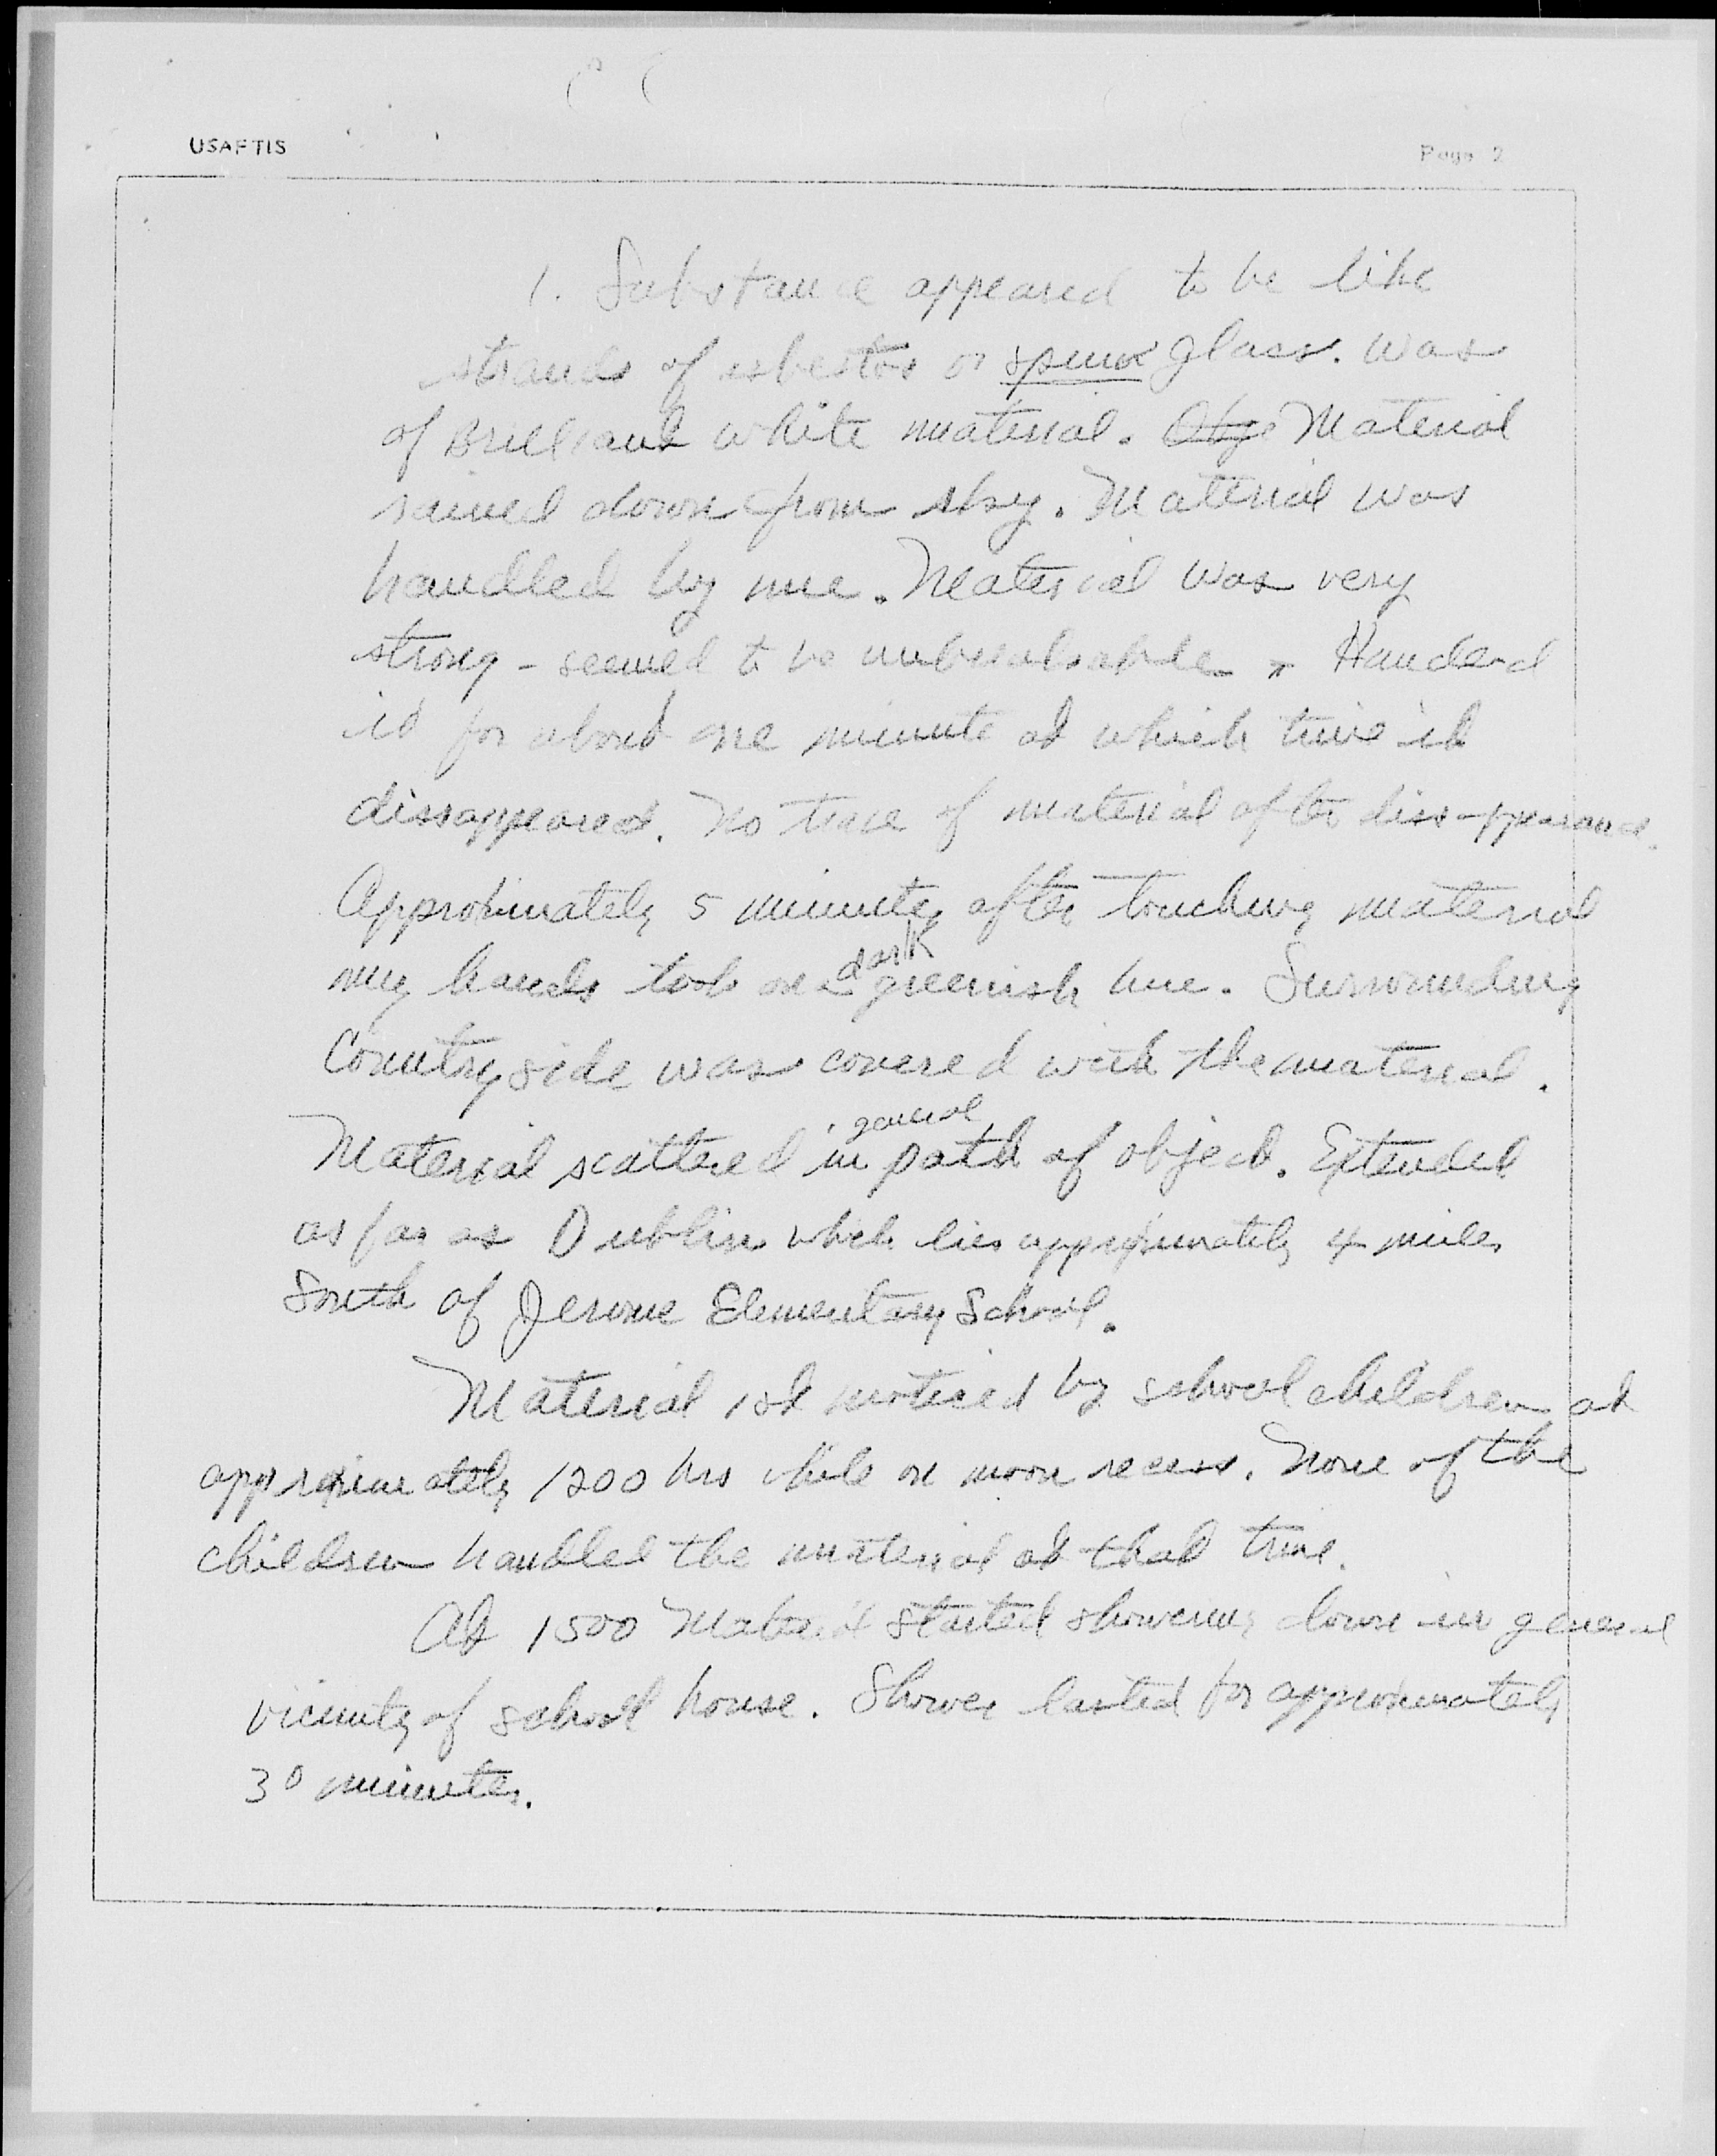 USAFTIS
Page 2
1. Substance appeared to be like
strands of asbestos or spun glass. Was
of Brilliant white material. Obje Material
rained down from sky. Material was
handled by me. Material was very
strong - seemed to be unbreakable. Handled
it for about one minute at which time it
dissappeared. No trace of material after dissappearance.
Approximately 5 minutes after touching material
dark
my hands took on a greenish hue. Surrounding
Countryside was covered with the material.
general
Material scattered in path of object. Extended
as far as Dublin which lies approximately 4 miles
South of Jerome Elementary School.
Material 1st noticed by school children at
approximately 1200 hrs while on noon recess. None of the
children handled the material at that time.
At 1500 Material started showering down in general
vicinity of school house. Shower lasted for approximately
30 minutes.